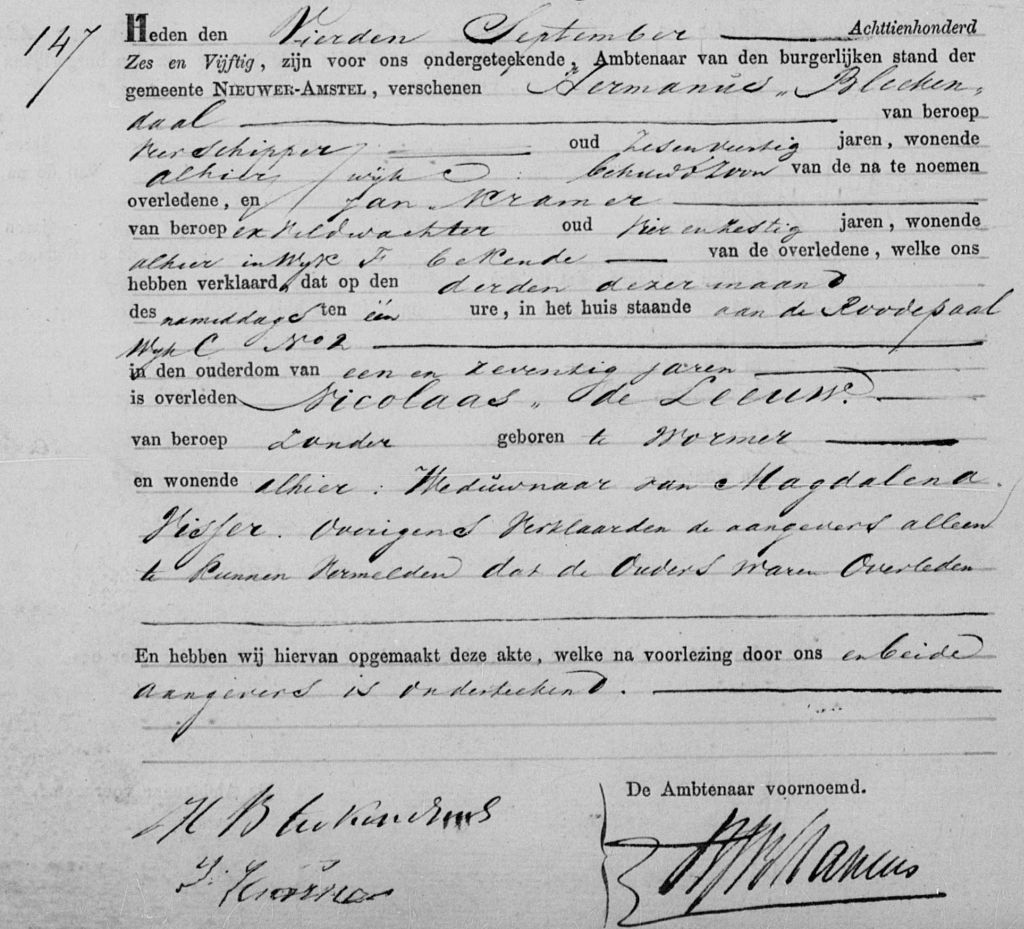 147
Heden den Vierden September Achttienhonderd
Zes en Vijftig, zijn voor ons ondergeteekende, Ambtenaar van den burgerlijken stand der
gemeente NIEUWER-AMSTEL, verschenen Hermanus Bleeken„
daal van beroep
Veerschipper oud Zesenveertig jaren, wonende
alhier, wijk C: behuwdzoon van de na te noemen
overledene, en Jan Kramer
van beroep ex Veldwachter oud Vier en Zestig jaren, wonende
alhier in Wyk F bekende van de overledene, welke ons
hebben verklaard, dat op den derden dezer maand
des namiddags ten één ure, in het huis staande aan de Roodepaal
Wyk C No 2
in den ouderdom van een en zeventig jaren
is overleden Nicolaas „ de Leeuw.
van beroep Zonder geboren te Wormer
en wonende alhier: Weduwnaar van Magdalena
Visser. Overigens Verklaarden de aangevers alleen
te kunnen Vermelden dat de Ouders waren Overleden
En hebben wij hiervan opgemaakt deze akte, welke na voorlezing door ons en beide
aangevers is onderteekend.
De Ambtenaar voornoemd.
H Bleekendaal